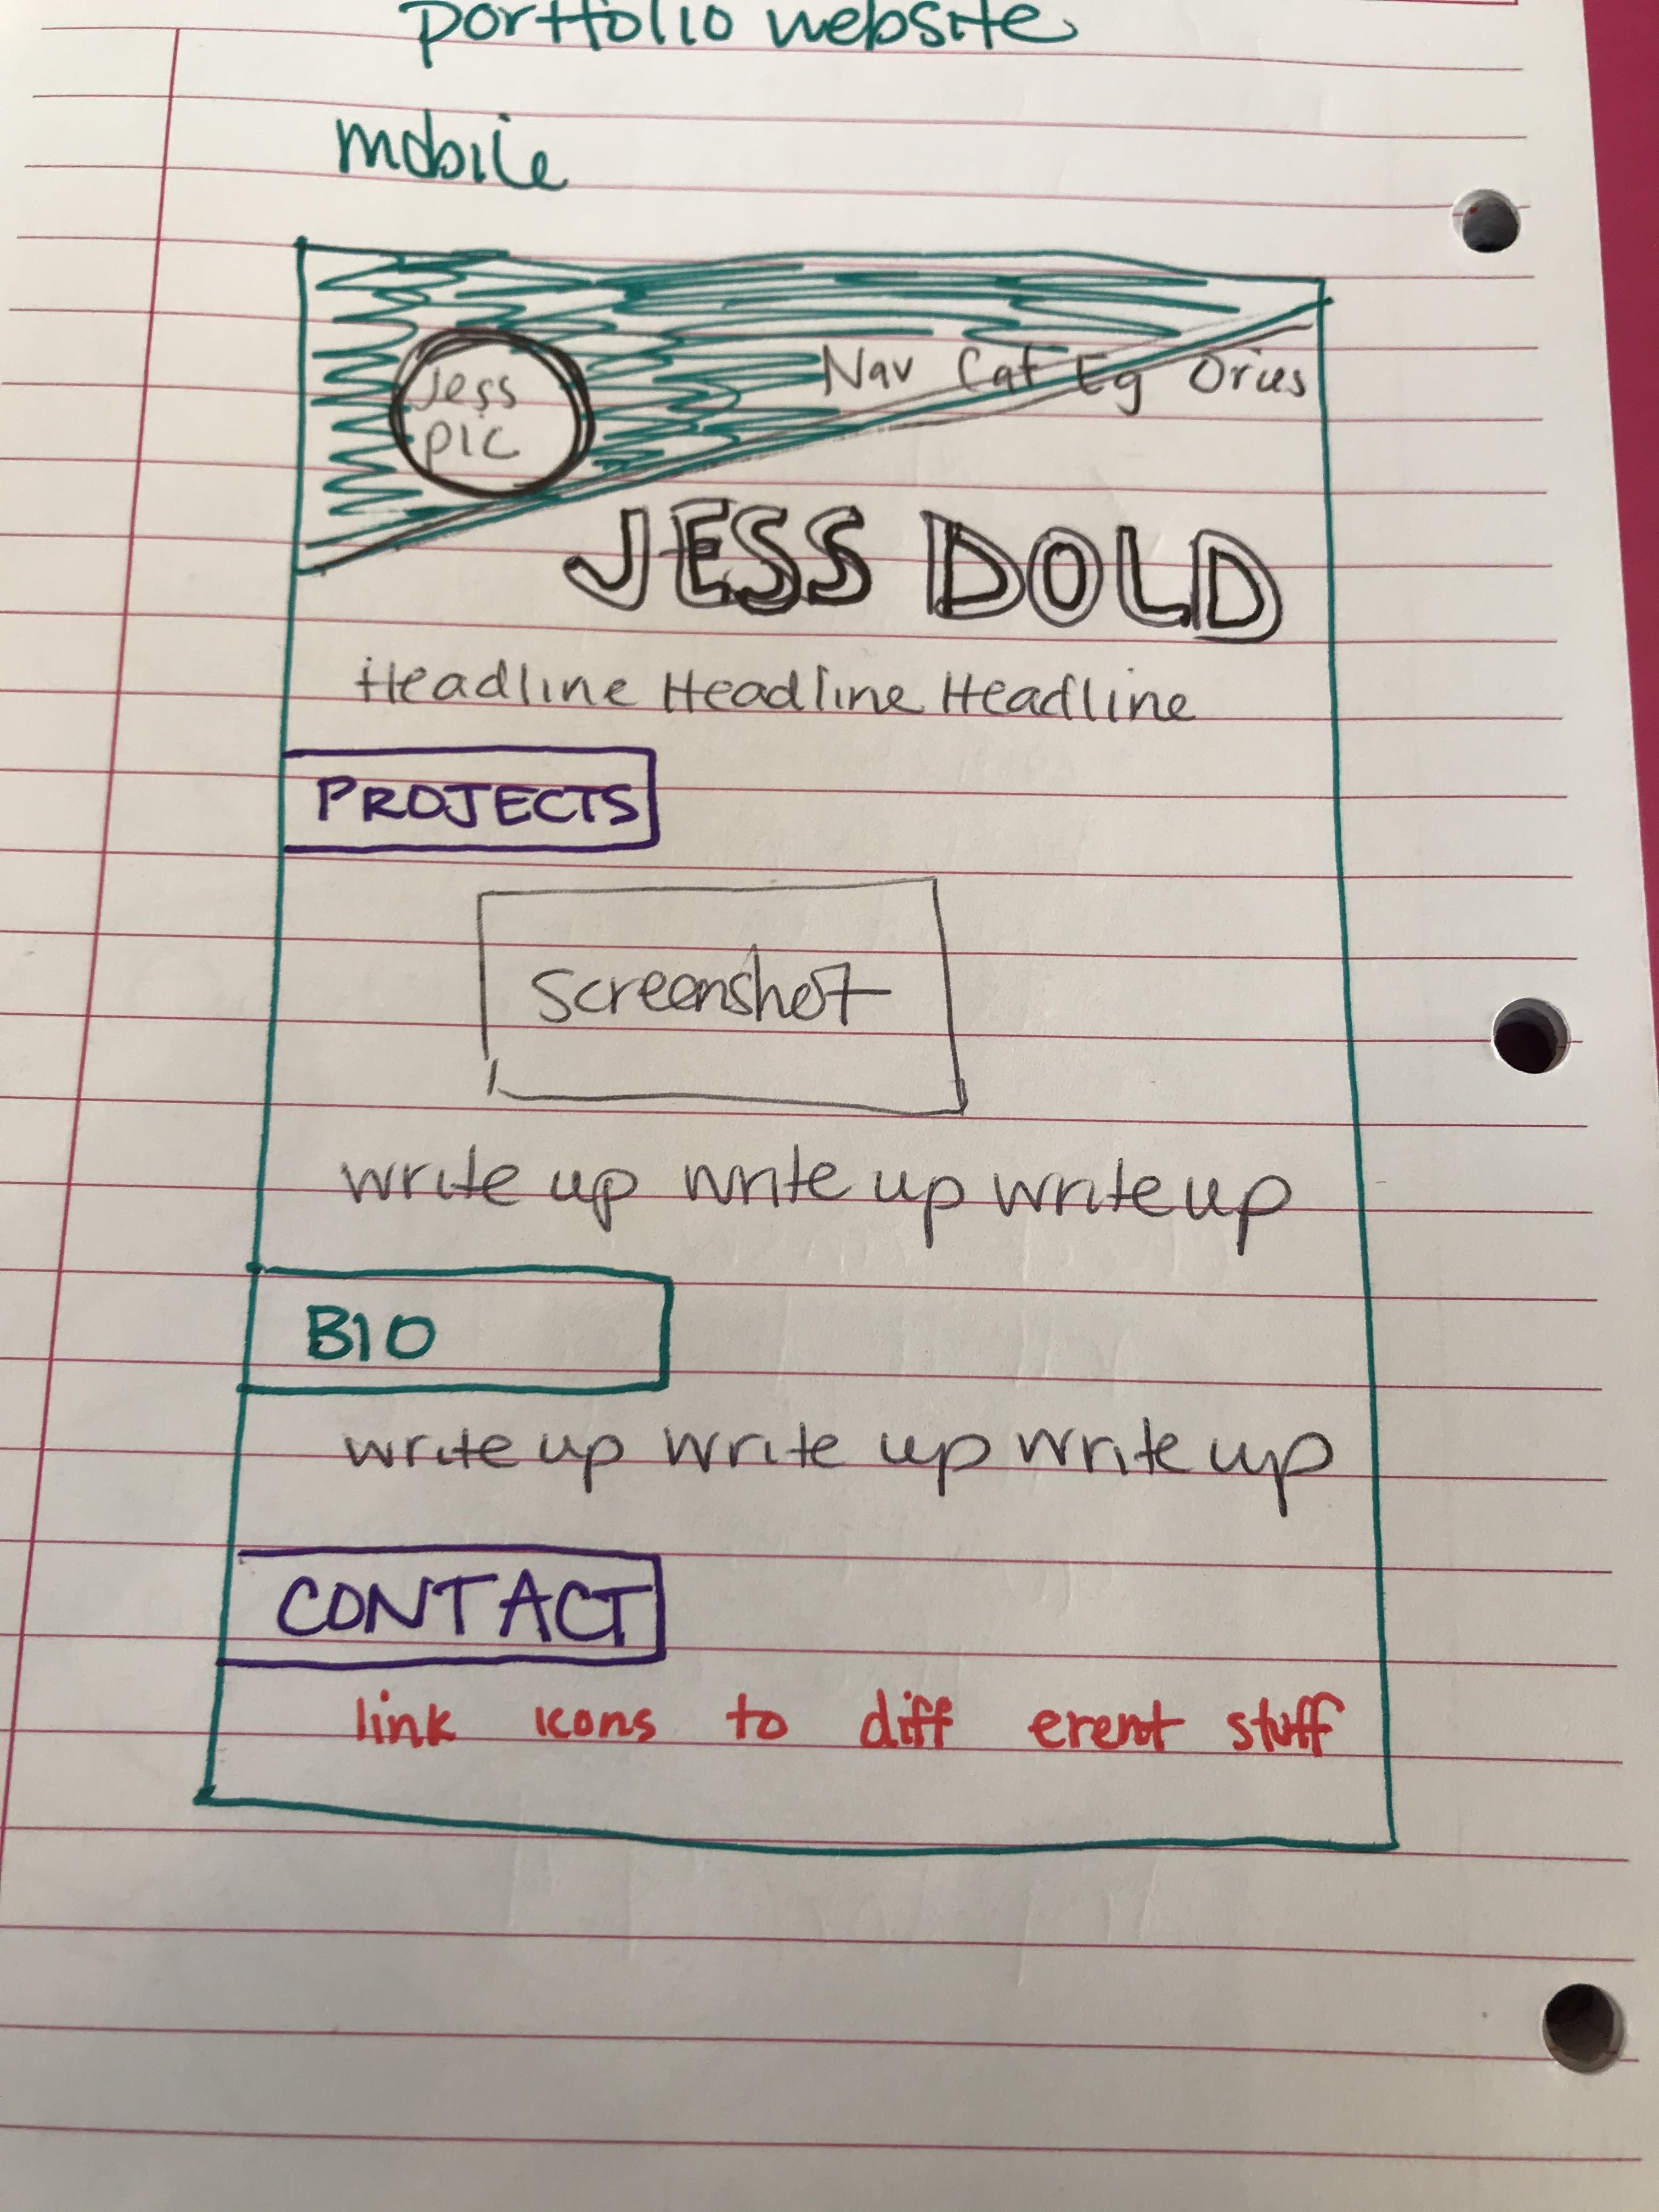 portfolio website
mobile
Nav Cat Eg Ories
Jess
pic
JESS DOLD
Headline Headline Headline
PROJECTS
Screenshot
write up write up write up
BIO
write up write up write up
CONTACT
link icons to diff erent stuff